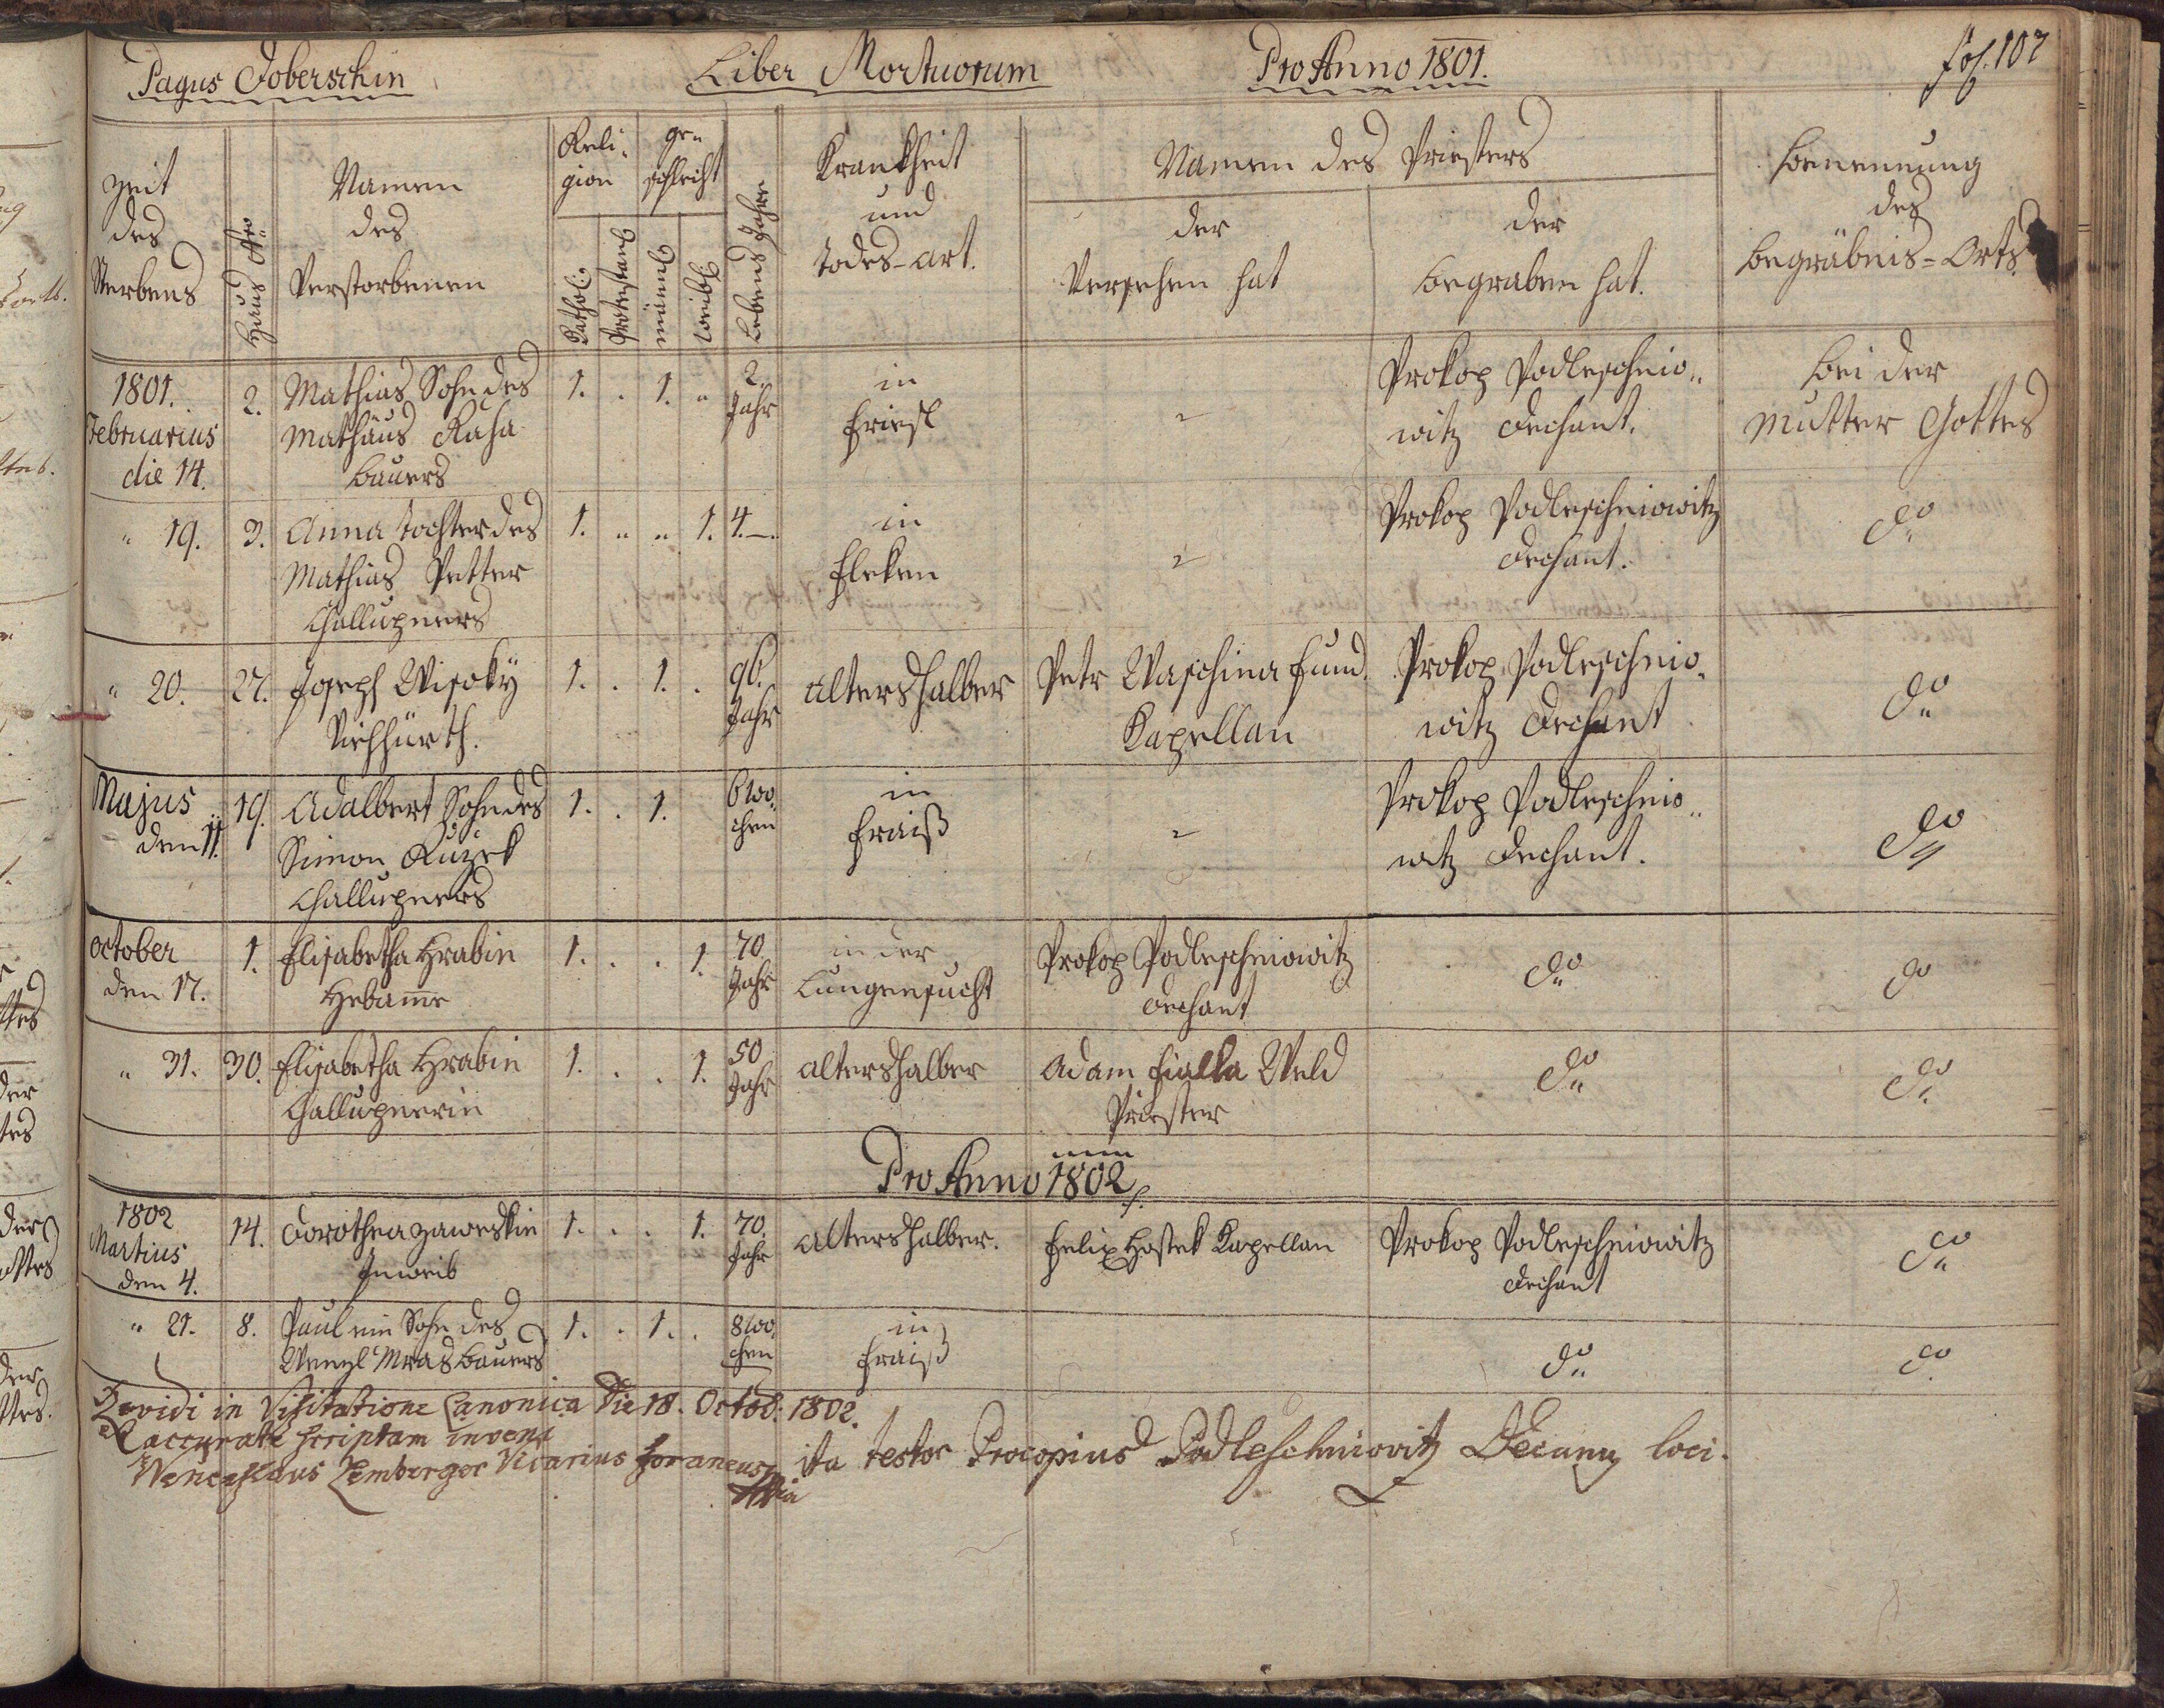 Pagus Doberschin Liber Mortuorum Pro Anno 1801. fol. 107
Zeit des Sterbens
Haus Nro
Namen des Verstorbenen
Religion
Kathol:
Protestant
Geschlecht
männl
weibl
Lebens Jahre
Krankheit und Todes-art.
Namen des Priesters
der Versehen hat
der begraben hat.
Benennung des Begräbnis-Orts
1801. Februarius die 14. 2. Mathias Sohn des 1. . 1. " 2 Jahr in Friesl Prokop Podleschnio„ bei der
Mathäus Raha witz Dechant. Mutter Gottes
Bauers
" 19. 3. Anna Tochter des 1. " " 1. 4.— in Fleken Prokop Podleschniowitz do
Mathias Petter Dechant.
Challupners
" 20. 27. Joseph Wisoky 1. . 1. . 96. Jahr altershalber Petr Waschina fund. Prokop Podleschnio„ do
Viehhürth. Kapellan witz Dechant
Majus den 11. 19. Adalbert Sohn des 1. . 1. 6 wochen in Fraiß Prokop Podleschnio„ do
Simon Ružek witz Dechant.
Challupners
October den 17. 1. Elisabetha Hrabin 1. . . 1. 70 Jahr in der Prokop Podleschniowitz do do
Hebam̅e Lungensucht Dechant
" 31. 30. Elisabetha Hrabin 1. . . 1. 50 Jahr altershalber Adam Fialka Weld do do
Challupnerin Priester
Pro Anno 1802
1802 Martius den 4. 14. Dorothea Zaweskin 1. . . 1. 70 Jahr altershalber. Felix Hostek Kapellan Prokop Podleschniowitz do
Inweib Dechant
" 21. 8. Paul ein Sohn des 1. . 1. . 8 wochen in Fraiß do do
Wenzl Mras Bauers
Revidi in Visitatione Canonica Die 18. Octob: 1802.
& accurate scriptam inveni
Wenceslaus Lemberger Vicarius foraneus ita testor Procopius Podleschniovitz Decanus loci.